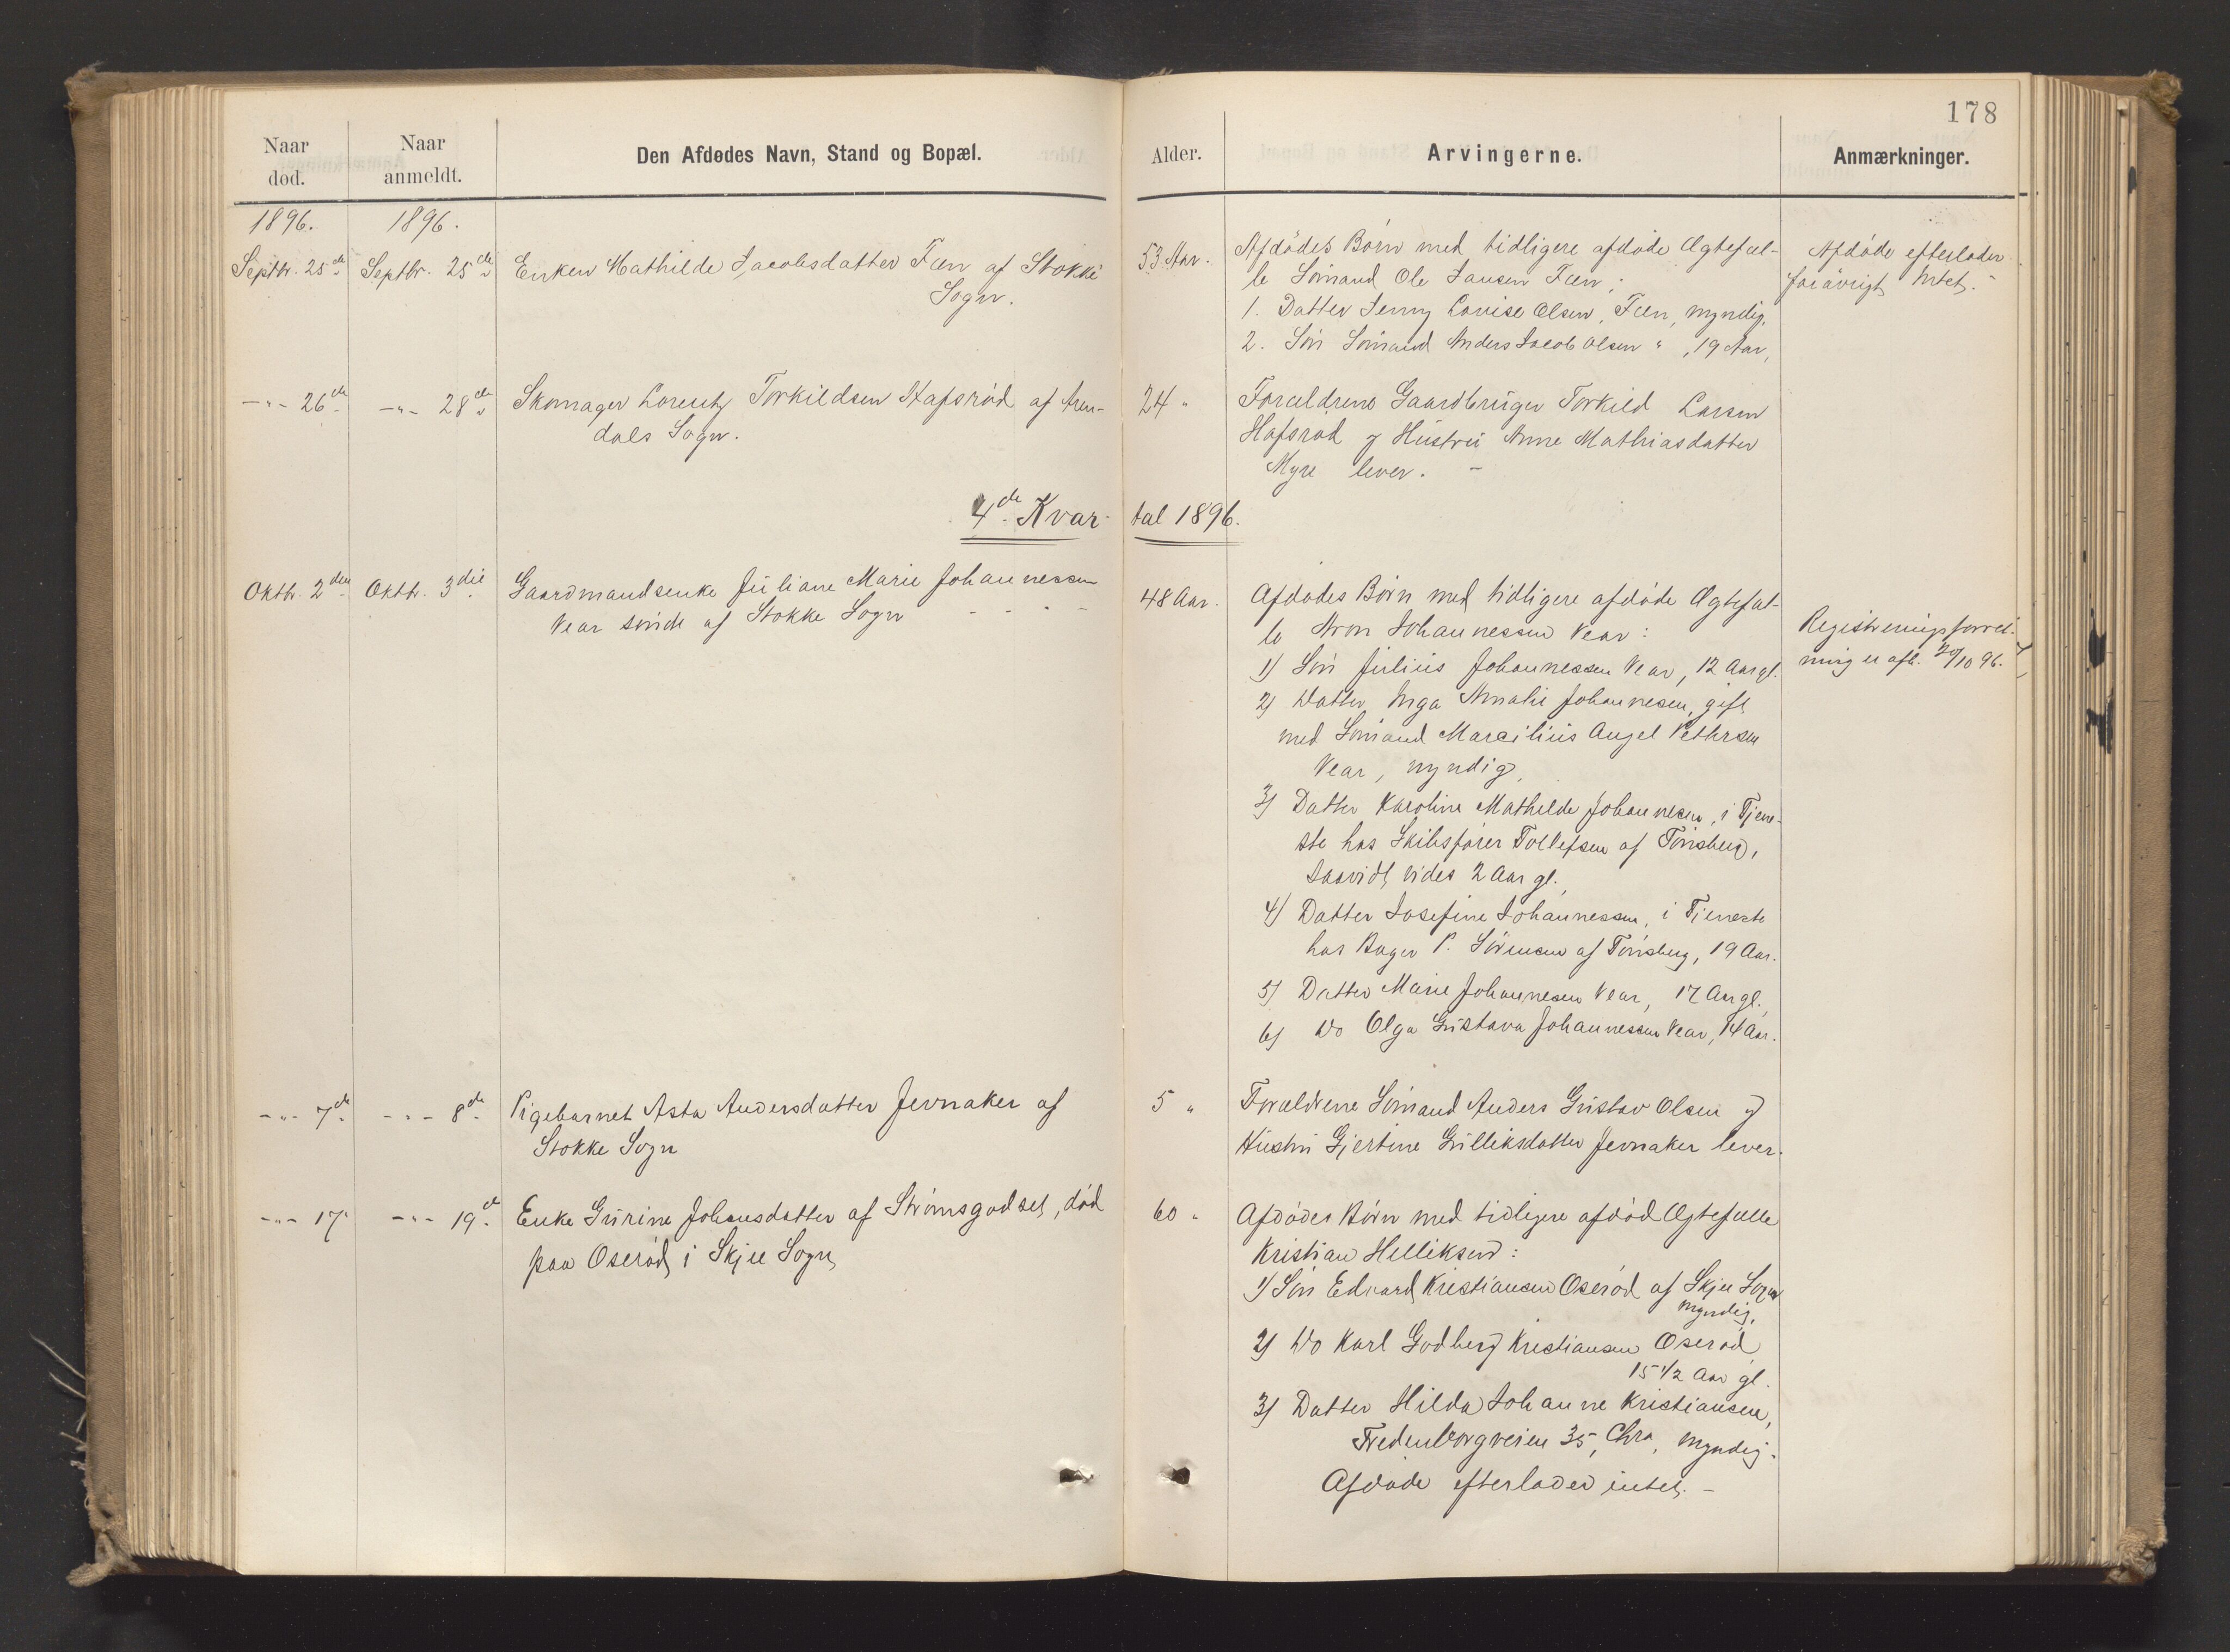 178
Naar død.
Naar anmeldt.
Den Afdødes Navn, Stand og Bopæl.
Alder.
Arvingerne.
Anmærkninger.
1896.
1896.
Septbr. 25de
Septbr. 25de
Enken Mathilde Jacobsdatter Fæn af Stokke
Sogn.
53 Aar.
Afdødes Børn med tidligere afdøde Ægtefæl-
le Sømand Ole Jansen Fæn;
1. Datter Jenny Lovise Olsen, Fæn, myndig,
2. Søn Sømand Anders Jacob Olsen " , 19 Aar,
Afdøde efterlader
forøvrigt Intet. -
-"- 26de
-"- 28de
Skomager Lorentz Torkildsen Hafsrød af Aren-
dals Sogn.
24 "
Forældrene Gaardbruger Torkild Larsen
Hafsrød og Hustru Anne Mathiasdatter
Myre lever. -
4de Kvar-
tal 1896.
Oktb. 2den
Oktb. 3die
Gaardmandsenke Juliane Marie Johannessen
Vear søndre af Stokke Sogn - - - -
48 Aar.
Afdødes Børn med tidligere afdøde Ægtefæl-
le Aron Johannessen Vear:
1) Søn Julius Johannessen Vear, 12 Aar gl.
2) Datter Inga Amalie Johannesen, gift
med Sømand Marcilius Angel Pettersen
Vear, myndig,
3) Datter Karoline Mathilde Johannesen, i Tjene-
ste hos Skibsfører Tollefsen af Tønsberg,
saavidt vides 2 Aar gl.,
4) Datter Josefine Johannessen, i Tjeneste
hos Bager P. Sørensen af Tønsberg, 19 Aar.
5) Datter Marie Johannesen Vear, 17 Aar gl.,
6) Do Olga Gustava Johannessen Vear, 14 Aar.
Registreringsforret-
ning er afh. 20/10 96.
-"- 7de
-"- 8de
Pigebarnet Asta Andersdatter Jernaker af
Stokke Sogn
5 "
Forældrene Sømand Anders Gustav Olsen og
Hustru Gjertine Gulliksdatter Jernaker lever.
-"- 17
-"- 19de
Enke Gurine Johansdatter af Strømsgodset, død
paa Oserød i Skjee Sogn
60 "
Afdødes Børn med tidligere afdød Ægtefælle
Kristian Helliksen:
1) Søn Edvard Kristiansen Oserød af Skjee Sogn
myndig,
2) Do Karl Godberg Kristiansen Oserød
15 1/2 Aar gl.
3) Datter Hilda Johanne Kristiansen,
Fredenborgveien 35, Chra, myndig.
Afdøde efterlader intet. -